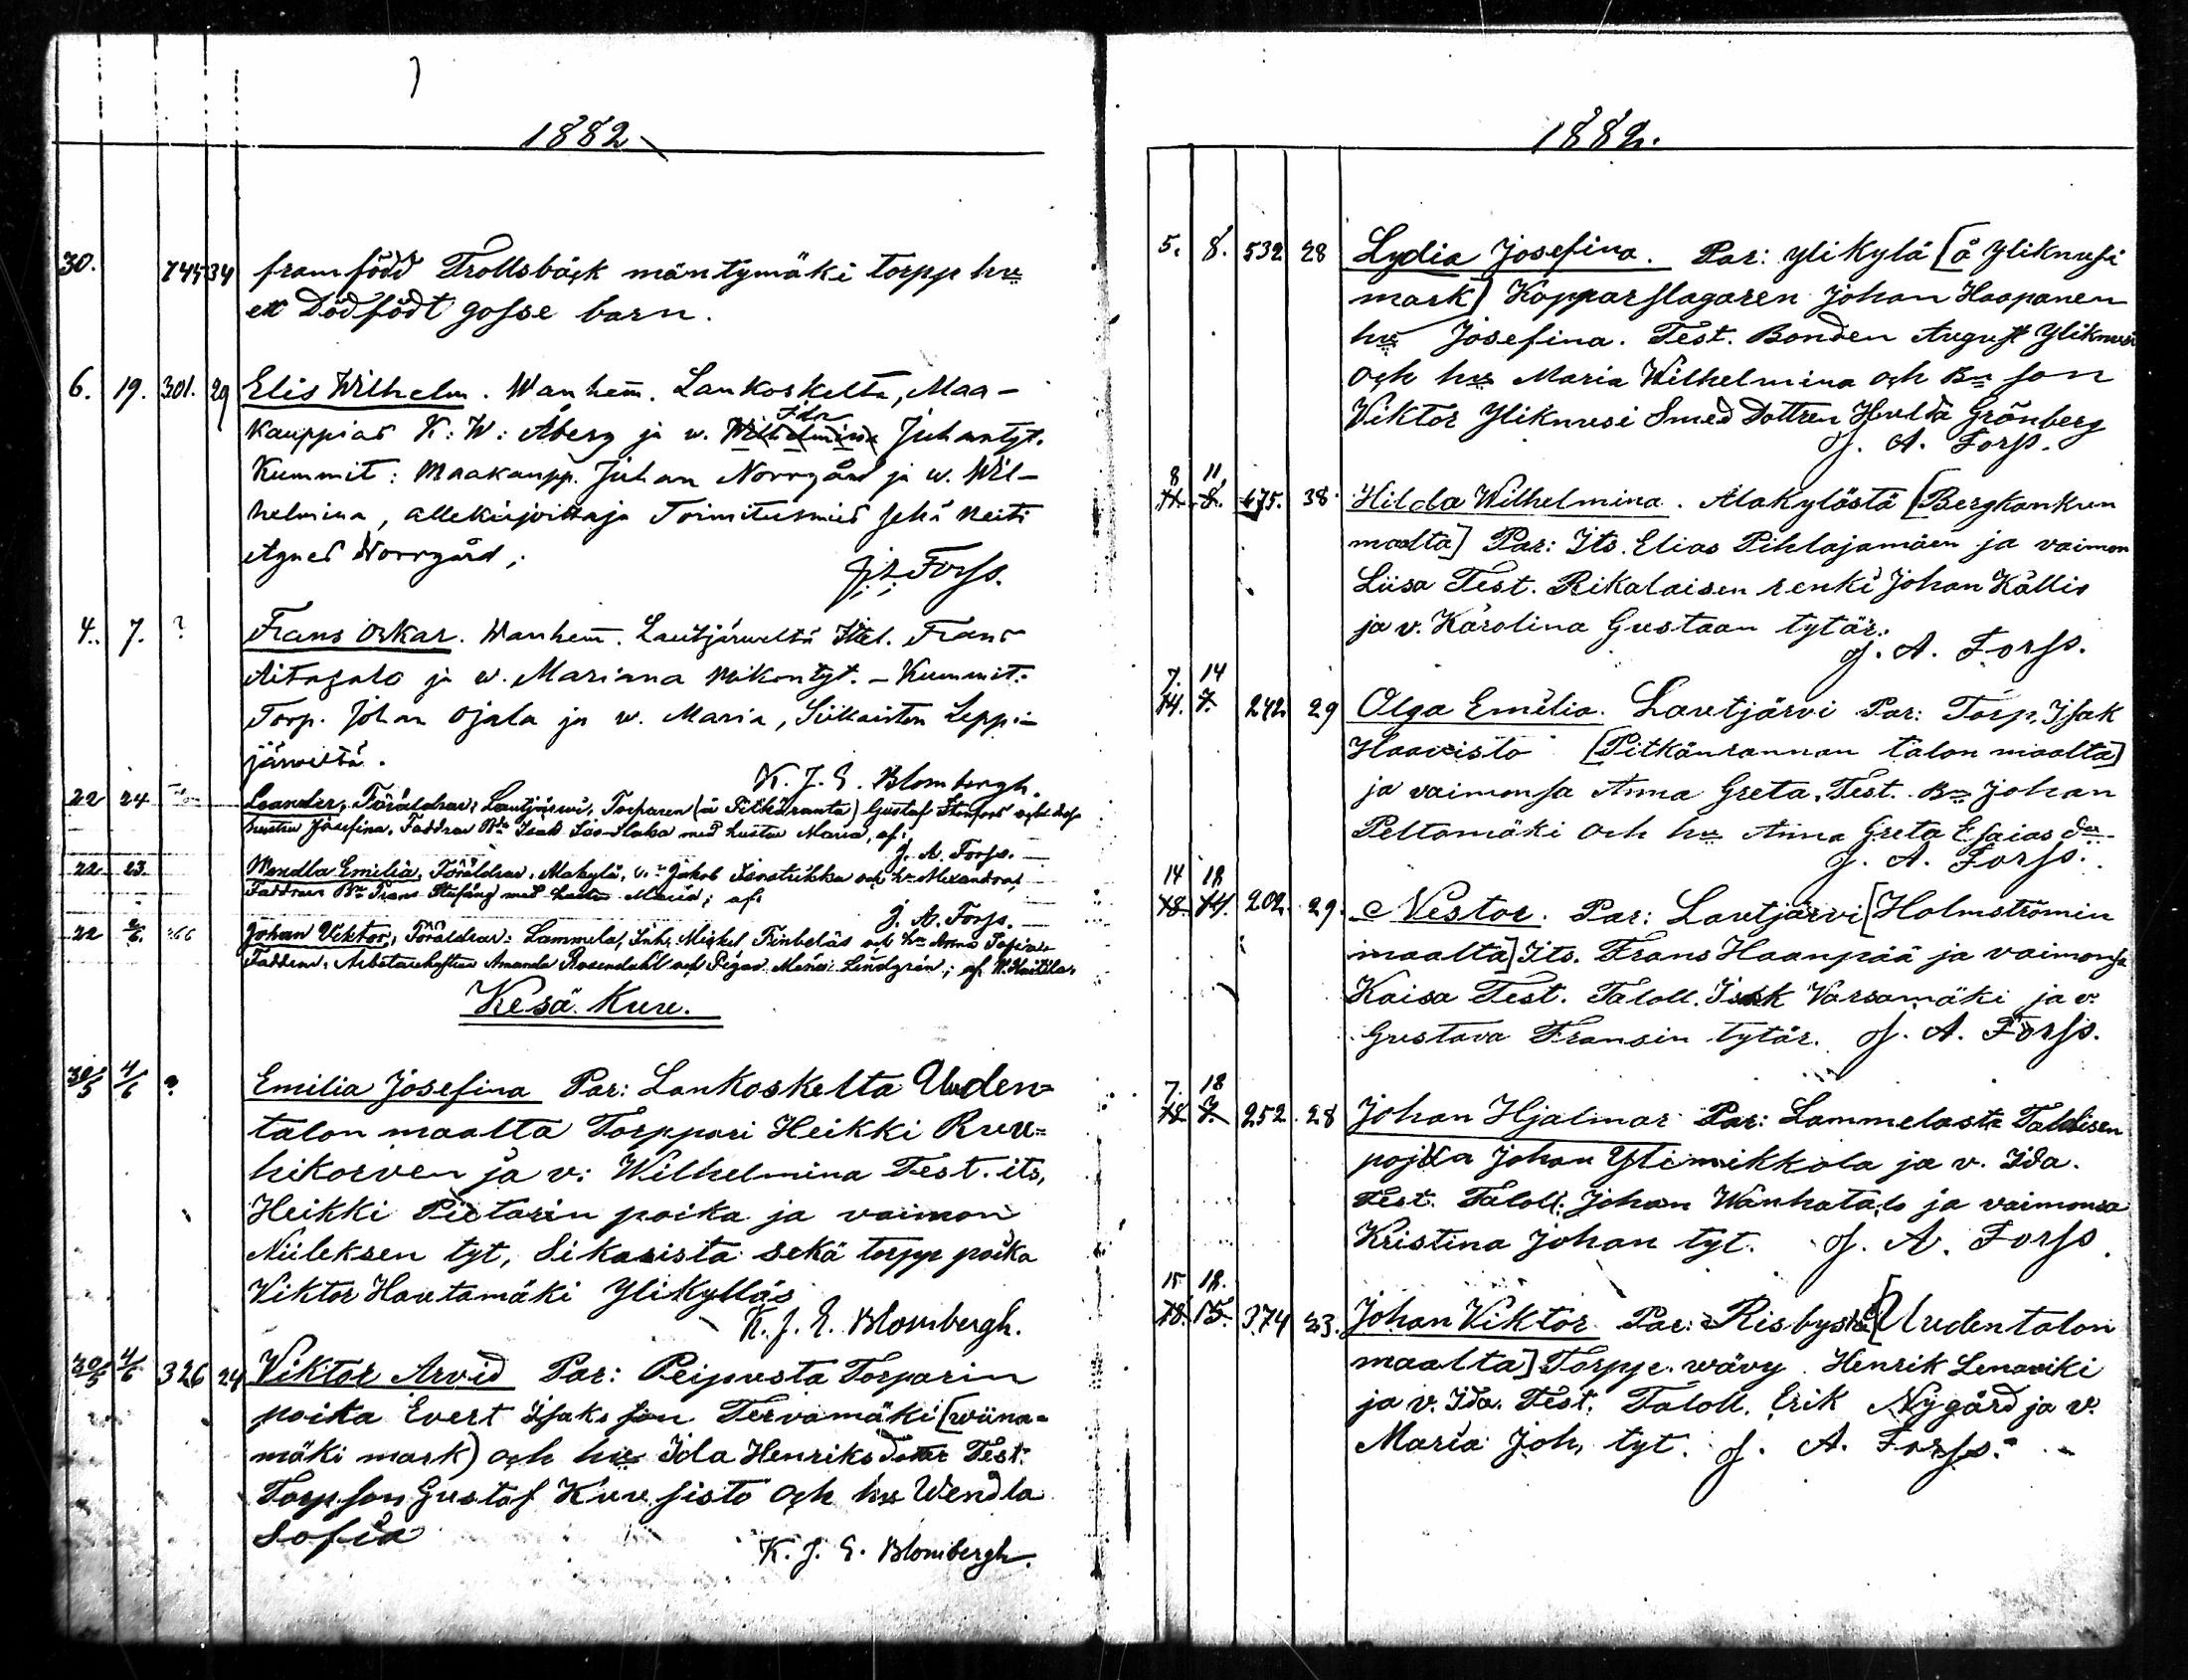 1882
30. 744 34 framfödd Trollsbäck mäntymäki torpp hu
ett Dödfödt gosse barn.
6. 19. 301. 29 Elis Wilhelm. Wanhem. Lankoskelta, Maa-
Ida
kauppias K: W: Åberg ja w. Wilhelmina Juhantyt.
Kummit: Maakaupp. Juhan Norrgård ja w. Wil-
helmina, allekirjoittaja Toimitusmies sekä Neiti
Agnes Norrgård;
Forss.
4. 7. ? Frans Oskar. Wanhem. Lautjärweltä Itel. Frans
Aitasalo ja w. Mariana Mikontyt. - Kummit:
Torp. Johan Ojala ja w. Maria, Siikaisten Leppi-
järweltä.
K. J. E. Blombergh.
22 24 Leander, Föräldrar: Lautjärwi, Torparen (å Pitkäranta) Gustaf Stenfors och dess
hustru Josefina, Faddrar Isak med hustru Maria, af:
J. A. Forss.
22 23 Wendla Emilia, Föräldrar: Alakylä, Jakob och hu Alexandra,
Faddrar Bn Frans med hustru Maria; af:
J. A. Forss.
22 2/6. 266 Johan Viktor, Föräldrar: Lammela, Inh. Mickel och hu Anna Sofia
Faddrar: Arbetarehustru Amanda Rosendahl och Pigan Maria Lindgrén; af
Kesä Kuu.
30/5 4/6 ? Emilia Josefina Par: Lankoskelta Uuden=
talon maalta Torppari Heikki Ruu=
hikorven ja v: Wilhelmina Test. its,
Heikki Pietarin poika ja vaimon
Niileksen tyt, Sikasista sekä torpp poika
Viktor Hautamäki Ylikylläs
K. J. E. Blombergh.
30/5 4/6 326 24 Viktor Arvid Par: Peipusta Torparin
poika Evert Isaks son Tervamäki (wiina=
mäki mark) och hu Ida Henriks dotter Test:
Torpson Gustaf Kuusisto och hu Wendla
Sofia
K. J. E. Blombergh.
1882.
5. 8. 532 28 Lydia Josefina. Par: Ylikylä [å Yliknusi
mark] Kopparslagaren Johan Haapanen
hu Josefina. Test. Bonden August Yliknusi
och hu Maria Wilhelmina och Bn son
Viktor Yliknusi Smed Dottren Hulda Grönberg
J. A. Forss.
8 11
11. 8. 475. 38 Hilda Wilhelmina. Alakylästä [Bergkankun
maalta] Par: Its. Elias Pihlajamäen ja vaimon
Liisa Test. Rikalaisen renki Johan Kallio
ja v. Karolina Gustaan tytär.
J. A. Forss.
7. 14
14. 7. 242 29 Olga Emilia. Lautjärvi Par: Torp. Isak
Haavisto [Pitkänrannan talon maalta]
ja vaimonsa Anna Greta. Test. Bn Johan
Peltomäki och hu Anna Greta Esaias dr
J. A. Forss.
14 18
18. 14. 202. 29. Nestor. Par: Lautjärvi [Holmströmin
maalta] Its. Frans Haanpää ja vaimonsa
Kaisa Test. Taloll. Isak Varsamäki ja v:
Gustava Fransin tytär. J. A. Forss.
7. 18
18 7. 252 28 Johan Hjalmar Par: Lammelasta Talolisen
pojda Johan Ylimikkola ja v. Ida.
Test. Taloll. Johan Wanhatalo ja vaimonsa
Kristina Johan tyt. J. A. Forss.
15 18.
18. 15. 374 23. Johan Viktor Par: Risbystä [Uuden talon
maalta] Torppe. wävy Henrik Lenaviki
ja v. Ida. Test. Taloll. Erik Nygård ja v.
Maria Joh, tyt. J. A. Forss.